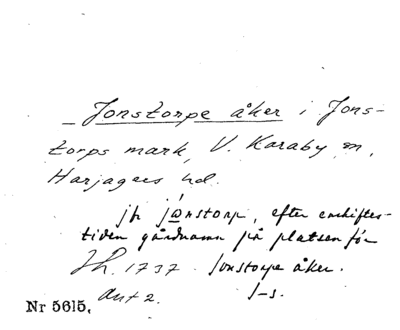 _ Jonstorpe åker i Jons-
torps mark, V. Karaby sn,
Harjagers hd.
jfr jonstorp, efter enskiftes-
tiden gårdnamn på platsen för
Jh. 1737. Jonstorpe åker.
Ant 2. J-s.
Nr 5615.